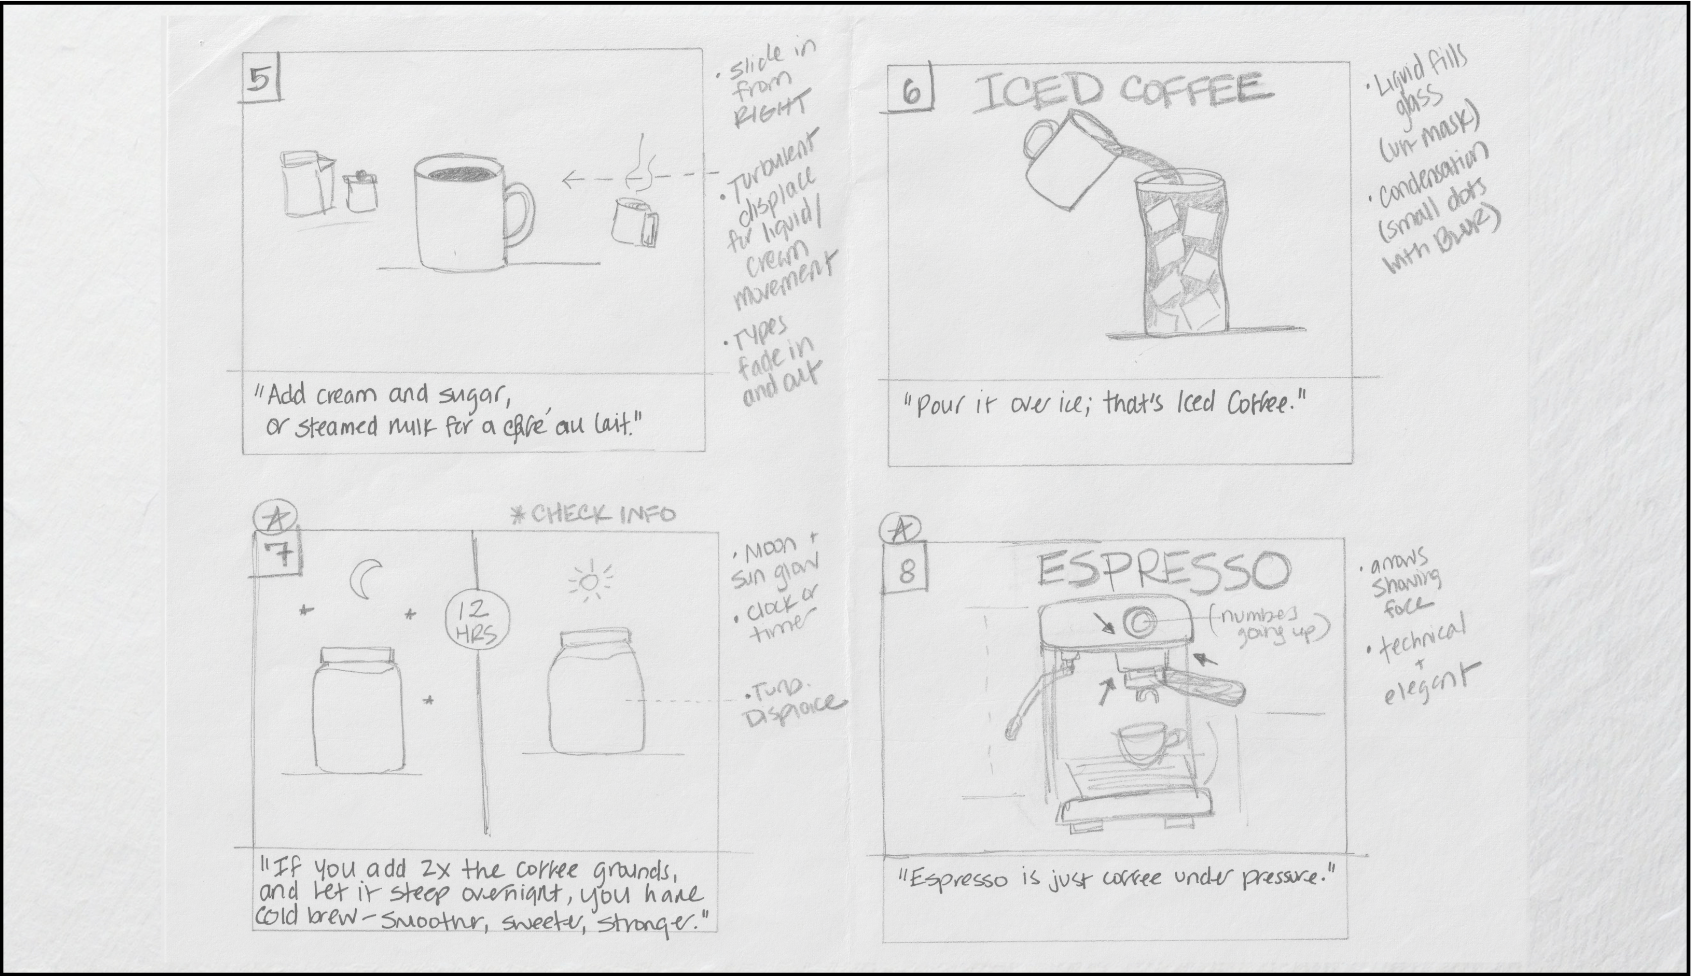 5
• Slide in
from
RIGHT
• Turbulent
displace
for liquid/
cream
movement
• Types
fade in
and out
"Add cream and sugar,
or steamed milk for a café au lait."
6
ICED COFFEE
• Liquid fills
glass
(un-mask)
• Condensation
(small dots
with Blur)
"Pour it over ice; that's Iced Coffee."
A
7
* CHECK INFO
12
HRS
• Moon +
sun glow
• clock or
timer
• Turb.
Displace
"If you add 2x the coffee grounds,
and let it steep overnight, you have
cold brew – smoother, sweeter, stronger."
A
8
ESPRESSO
(numbers
going up)
• arrows
showing
force
• technical
+
elegant
"Espresso is just coffee under pressure."